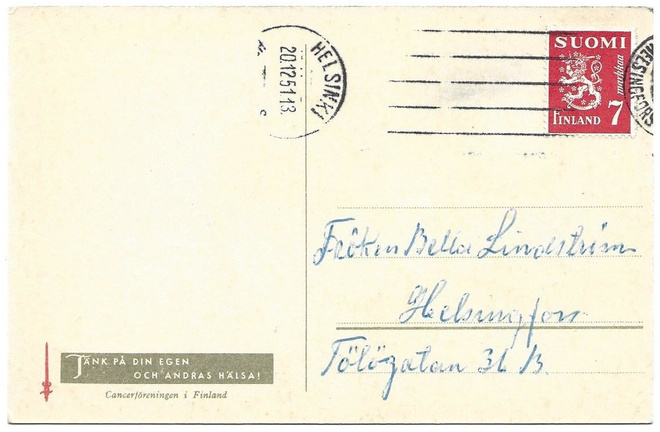 HELSINKI
20.12.51.13.
HELSINGFORS
SUOMI
markkaa
FINLAND 7
Fröken Bella Lindström
Helsingfors
Tölögatan 36 B.
TÄNK PÅ DIN EGEN
OCH ANDRAS HÄLSA!
Cancerföreningen i Finland